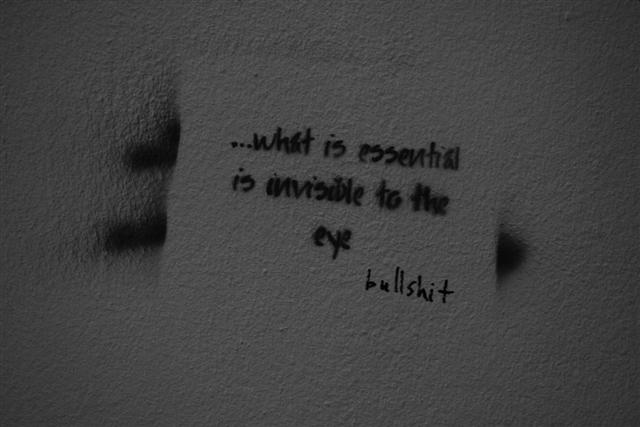 ...what is essential
is invisible to the
eye
bullshit